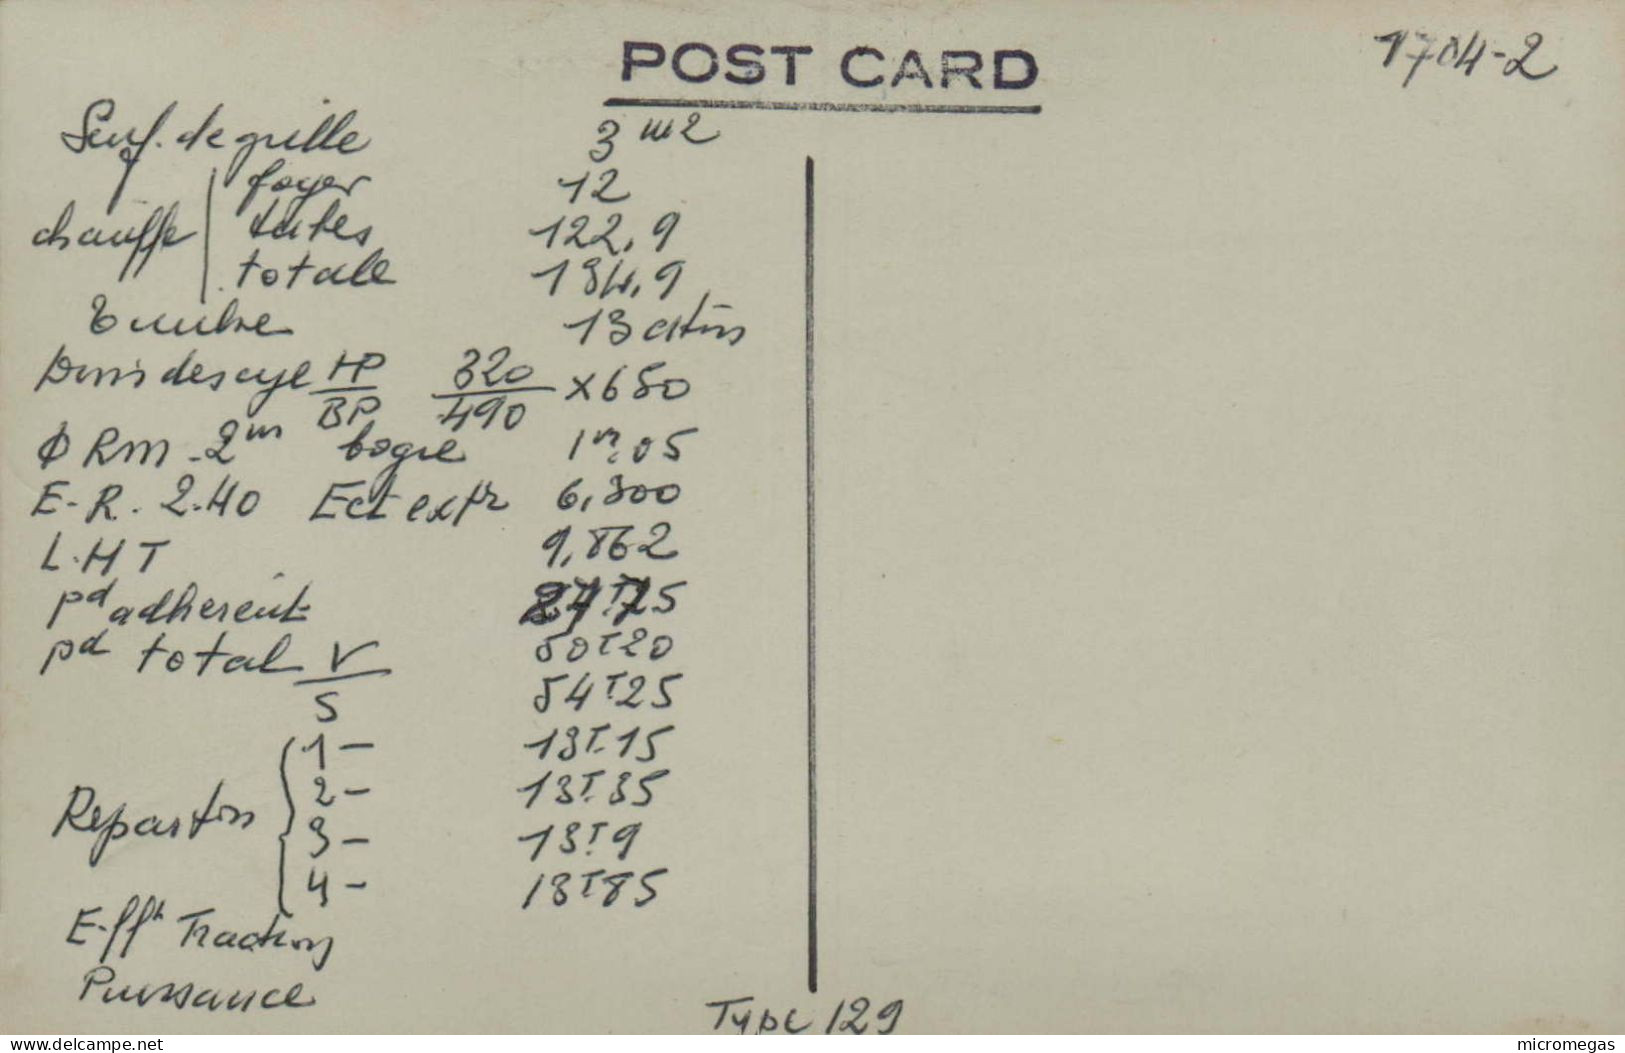 POST CARD
1704-2
Surf. de grille 3 m2
chauffe foyer 12
tubes 122,9
totale 134,9
Timbre 13
Dim's des cyl HP/BP 320/490 x 650
Φ Rm - 2m bogie 1m.05
E-R. 2.40 Ect extr 6,300
L.H T 9,862
pd adherent 27T.75
pd total V 50T20
S 54T.25
Reparton 1 - 13T.15
2 - 13T.35
3 - 13T.9
4 - 13T85
Efft Traction
Puissance
Type 129
delcampe.net
micromegas